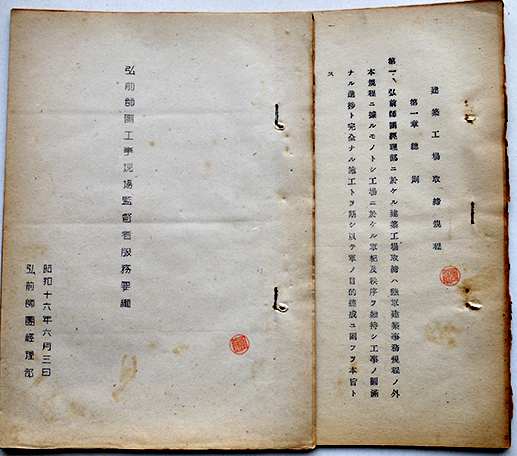 建築工場取締規程
第一章 總則
第一、弘前師團經理部ニ於ケル建築工場取締ハ陸軍建築事務規程ノ外
本規程ニ據ルモノトシ工場ニ於ケル軍紀及秩序ヲ維持シ工事ノ圓滿
ナル進捗ト完全ナル施工トヲ期シ以テ軍ノ目的達成ニ圖フヲ本旨ト
ス
弘前師團工事現場監督者服務要綱
昭和十六年六月三日
弘前師團經理部